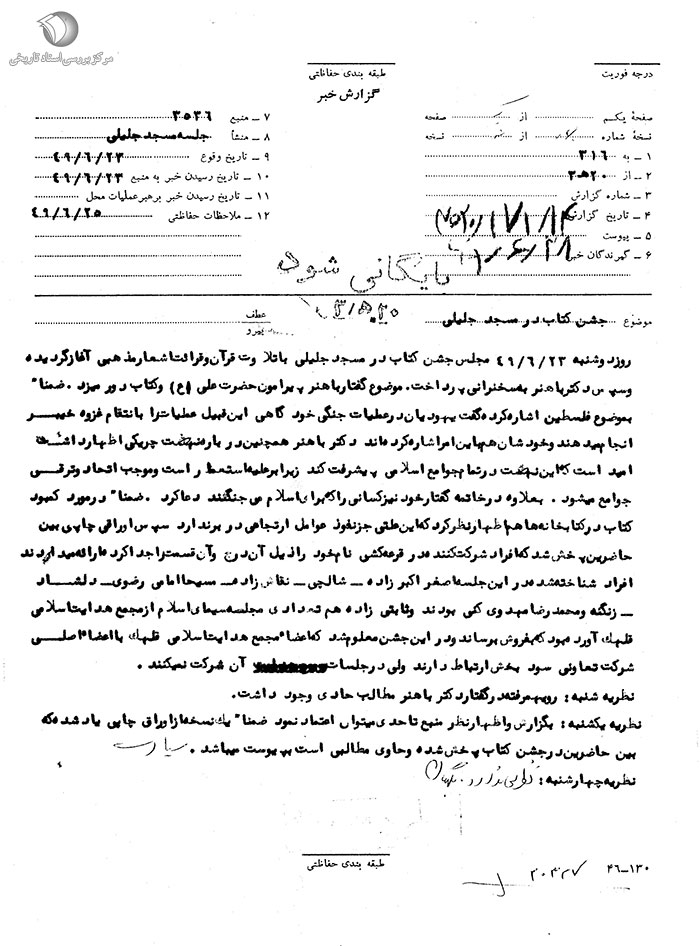 مرکز بررسی اسناد تاریخی
درجه فوریت
طبقه بندی حفاظتی
گزارش خبر
صفحهٔ یکم از صفحه
نسخهٔ شماره از نسخه
۱ ـ به ۳۱۶
۲ ـ از ۲۰ه۳
۳ ـ شماره گزارش
۴ ـ تاریخ گزارش
۵ ـ پیوست
۶ ـ گیرندگان خبر
۷ ـ منبع ۳۵۳۶
۸ ـ منشأ جلسه مسجد جلیلی
۹ ـ تاریخ وقوع ۴۹/۶/۲۳
۱۰ ـ تاریخ رسیدن خبر به منبع ۴۹/۶/۲۳
۱۱ ـ تاریخ رسیدن خبر برهبر عملیات محل
۱۲ ـ ملاحظات حفاظتی ۴۹/۶/۲۵
بایگانی شود
موضوع جشن کتاب در مسجد جلیلی
عطف
پیرو
روز دوشنبه ۴۹/۶/۲۳ مجلس جشن کتاب در مسجد جلیلی باتلاوت قرآن و قرائت اشعار مذهبی آغاز گردیده
و سپس دکتر باهنر به سخنرانی پرداخت. موضوع گفتار باهنر پیرامون حضرت علی (ع) و کتاب دور میزد. ضمنا"
بموضوع فلسطین اشاره کرده گفت یهودیان در عملیات جنگی خود گاهی این قبیل عملیات را با انتقام غزوه خیبر
انجام میدهند و خودشان هم باین امر اشاره کرده اند دکتر باهنر همچنین درباره نهضت چریکی اظهار داشت
امید است که این نهضت در تمام جوامع اسلامی پیشرفت کند زیرا بر علیه استعمار است و موجب اتحاد و ترقی
جوامع میشود. بعلاوه در خاتمه گفتار خود نیز کسانی را که برای اسلام می جنگند دعا کرد. ضمنا" در مورد کمبود
کتاب در کتابخانه ها هم اظهار نظر کرد که این علتی جز نفوذ عوامل ارتجاعی در بر ندارد سپس اوراقی چاپی بین
حاضرین پخش شد که افراد شرکت کننده در قرعه کشی نام خود را ذیل آن درج و آن قسمت را جدا کرده ارائه میدادند
افراد شناخته شده در این جلسه اصغر اکبرزاده ـ شالچی ـ نقاش زاده ـ مسیحا امامی رضوی ـ دلشاد
ـ زنگنه و محمد رضا مهدوی کنی بودند و ثابتی زاده هم تعدادی مجله سیمای اسلام از مجمع هدایت اسلامی
قلهک آورده بود که بفروش برساند و در این جشن معلوم شد که اعضا مجمع هدایت اسلامی قلهک با اعضا اصلی
شرکت تعاونی سود بخش ارتباط دارند ولی در جلسات آن شرکت نمیکنند.
نظریه شنبه: رویهمرفته در گفتار دکتر باهنر مطالب حادی وجود داشت.
نظریه یکشنبه: بگزارش و اظهار نظر منبع تا حدی میتوان اعتماد نمود ضمنا" یک نسخه از اوراق چاپی یاد شده که
بین حاضرین در جشن کتاب پخش شده و حاوی مطالبی است به پیوست میباشد.
نظریه چهارشنبه: نظری ندارد.
طبقه بندی حفاظتی
۴۶-۱۳۰